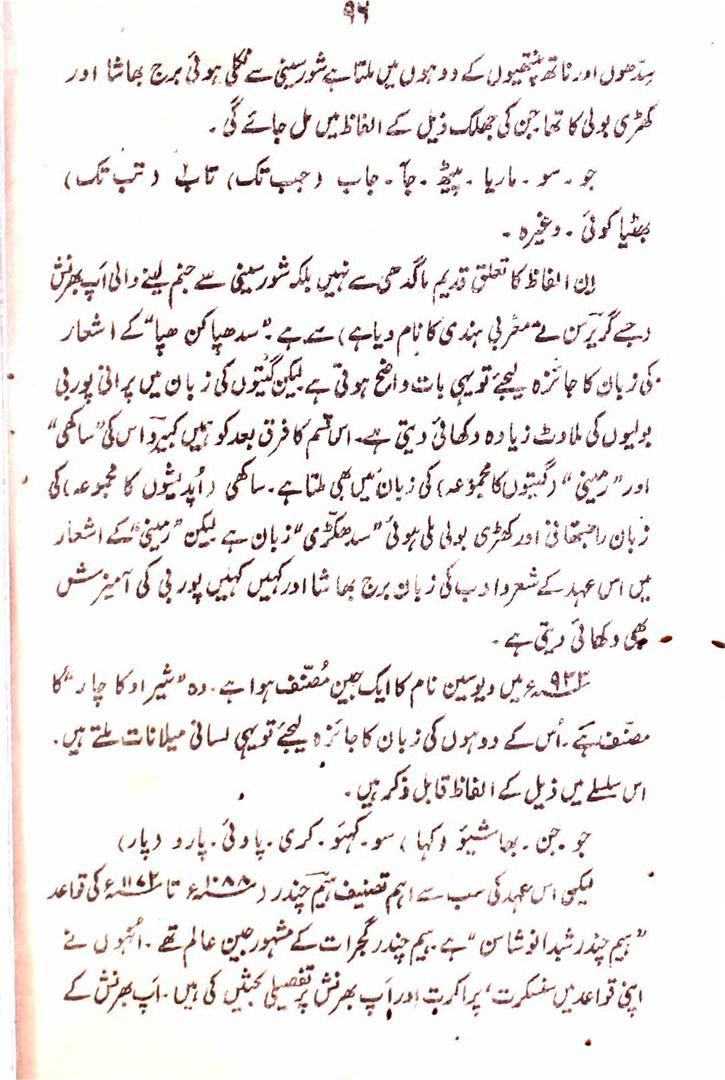 ۹۶
سِدّھوں اور ناتھ پنتھیوں کے دوہوں میں ملتا ہے شور سینی سے نکلی ہوئی برج بھاشا اور
کھڑی بولی کا تھا جن کی جھلک ذیل کے الفاظ میں مل جائے گی۔
جو ۔ سو ۔ ماریا ۔ پیٹھ ۔ جآ ۔ جاب (جب تک) تاب (تب تک)
بھٹیا کوئی ۔ وغیرہ ۔
اِن الفاظ کا تعلق قدیم ماگدھی سے نہیں بلکہ شور سینی سے جنم لینے والی اَپ بھرنش
(جسے گریرسن نے مغربی ہندی کا نام دیا ہے) سے ہے۔ "سدھپا کن ھپا" کے اشعار
کی زبان کا جائزہ لیجئے تو یہی بات واضح ہوتی ہے لیکن گیتوں کی زبان میں پرانی پوربی
بولیوں کی ملاوٹ زیادہ دکھائی دیتی ہے۔ اس قسم کا فرق بعد کو ہمیں کبیر داس کی "ساکھی"
اور "رمینی" (گیتوں کا مجموعہ) کی زبان میں بھی ملتا ہے۔ ساکھی (اُپدیشوں کا مجموعہ) کی
زبان راجستھانی اور کھڑی بولی ملی ہوئی "سدھکڑی" زبان ہے لیکن "رمینی" کے اشعار
میں اس عہد کے شعر و ادب کی زبان برج بھاشا اور کہیں کہیں پوربی کی آمیزش
بھی دکھائی دیتی ہے۔
۹۳۳ء میں دیوسین نام کا ایک جین مُصنّف ہوا ہے۔ وہ "شیراوکا چار" کا
مصنّف ہے۔ اُس کے دوہوں کی زبان کا جائزہ لیجئے تو یہی لسانی میلانات ملتے ہیں۔
اس سلسلے میں ذیل کے الفاظ قابل ذکر ہیں۔
جو ۔ جن ۔ بھاشیئو (کہا) سو ۔ کہئو ۔ کری ۔ پاوئی ۔ پارو (پار)
لیکن اس عہد کی سب سے اہم تصنیف ہیم چندر (۱۰۸۸ء تا ۱۱۷۲ء) کی قواعد
"ہیم چندر شبدانوشاسن" ہے۔ ہیم چندر گجرات کے مشہور جین عالم تھے۔ انہوں نے
اپنی قواعد میں سنسکرت، پراکرت اور اَپ بھرنش پر تفصیلی بحثیں کی ہیں۔ اَپ بھرنش کے